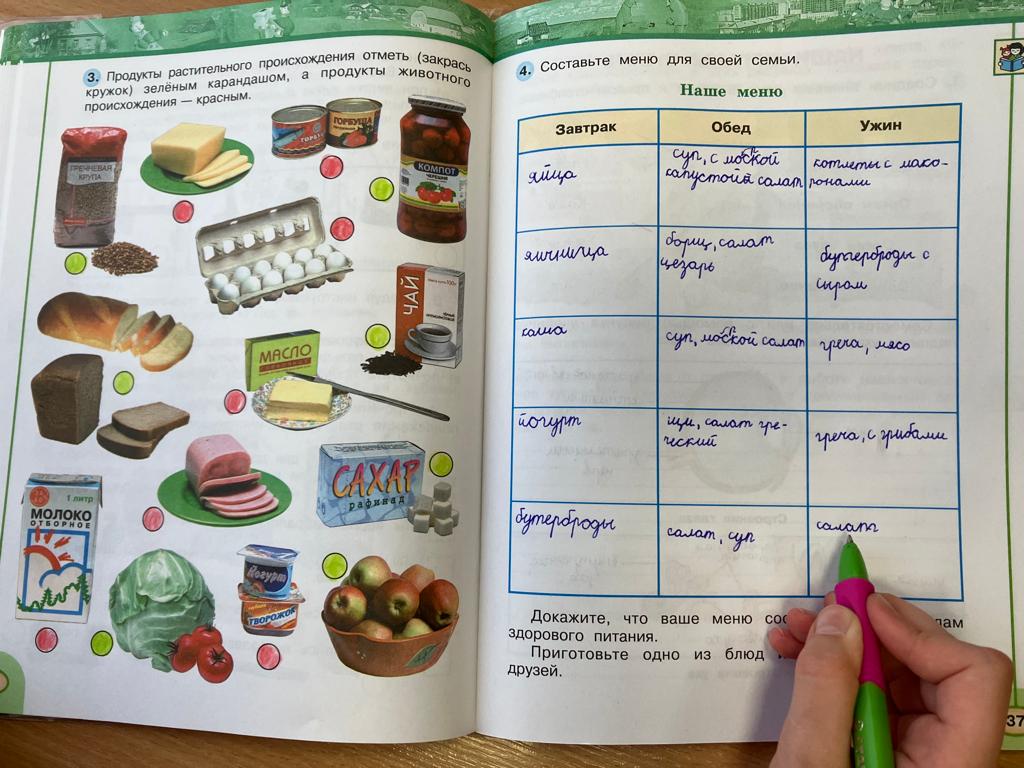 3. Продукты растительного происхождения отметь (закрась
кружок) зелёным карандашом, а продукты животного
происхождения — красным.
ГРЕЧНЕВАЯ
КРУПА
ГОРБУША
КОМПОТ
ЧЕРЕШНЯ
ЧАЙ
МАСЛО
САХАР
рафинад
1 литр
МОЛОКО
ОТБОРНОЕ
Йогурт
ТВОРОЖОК
4. Составьте меню для своей семьи.
Наше меню
Завтрак Обед Ужин
яйца
суп, с
капустой салат
котлеты с мако-
ронами
яичница
борщ, салат
цезарь
бутерброды с
сыром
каша
суп, салат
греча, мясо
йогурт
щи, салат гре-
ческий
греча, с грибами
бутерброды
салат, суп
салата
Докажите, что ваше меню
здорового питания.
Приготовьте одно из блюд
друзей.
37